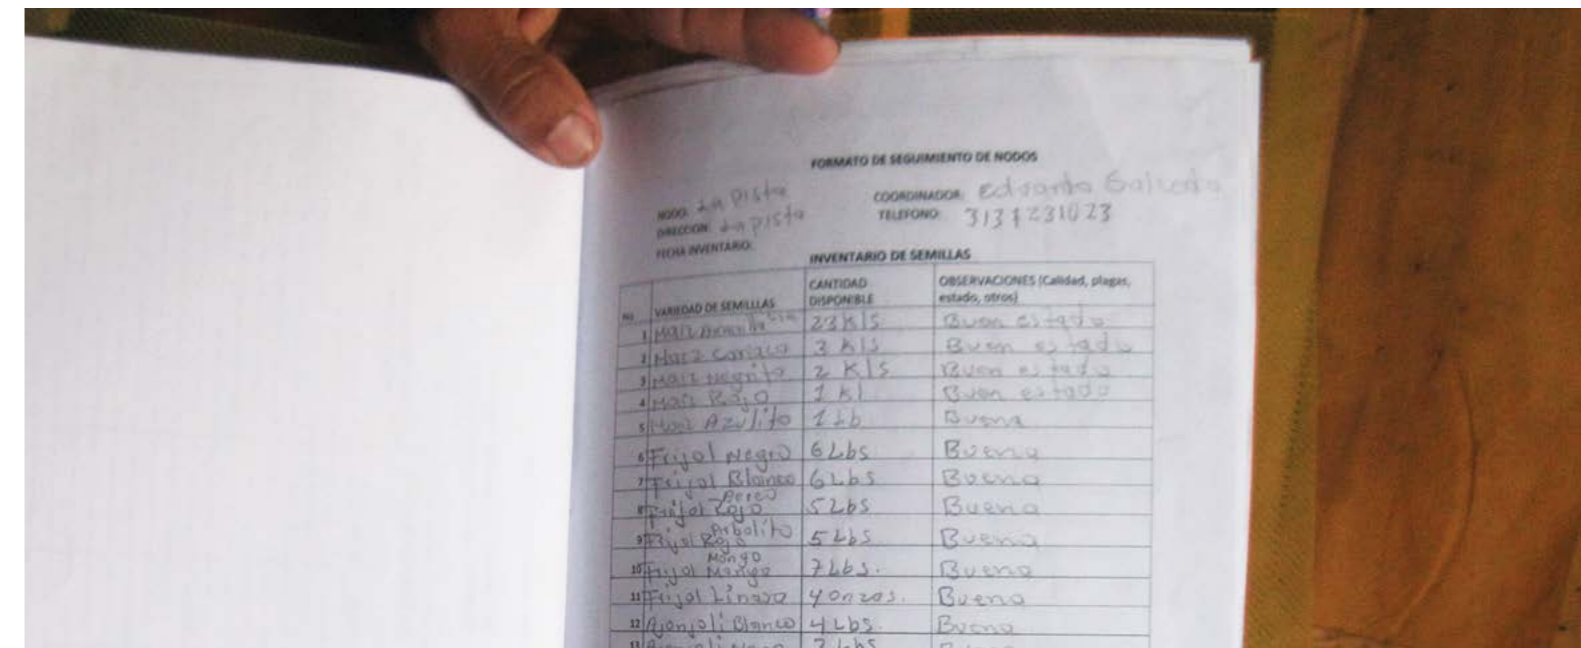 FORMATO DE SEGUIMIENTO DE NODOS
NODO: La Pista COORDINADOR: Eduardo Salcedo
DIRECCION: La Pista TELEFONO:
FECHA INVENTARIO:
INVENTARIO DE SEMILLAS
No VARIEDAD DE SEMILLLAS CANTIDAD DISPONIBLE OBSERVACIONES (Calidad, plagas, estado, otros)
1 Maiz 23 Kls Buen estado
2 Maiz Cariaco 3 Kls Buen estado
3 Maiz Negrito 2 Kls Buen estado
4 Maiz Rojo 1 Kl Buen estado
5 Maiz Azulito 1 Lb Buena
6 Frijol Negro 6 Lbs Buena
7 Frijol Blanco 6 Lbs Buena
8 Frijol Rojo 5 Lbs Buena
9 Frijol Rojo Arbolito 5 Lbs Buena
10 Frijol Mongo 7 Lbs. Buena
11 Frijol Linaza 4 onzas. Buena
12 Ajonjoli Blanco 4 Lbs. Buena
13 Ajonjoli Lbs